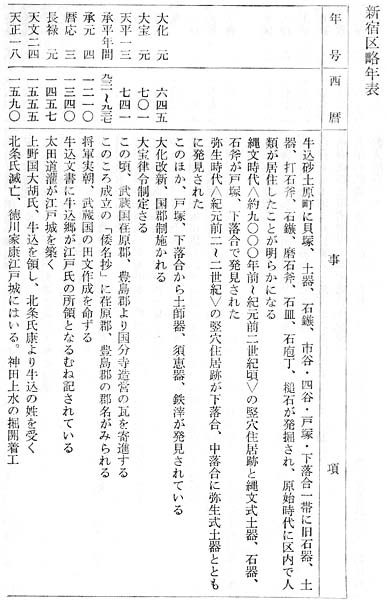 新宿区略年表
年号 西暦 事項
牛込砂土原町に貝塚、土器、石鏃、市谷・四谷・戸塚・下落合一帯に旧石器、土
器、打石斧、石鏃、磨石斧、石皿、石庖丁、槌石が発掘され、原始時代に区内で人
類が居住したことが明らかになる
縄文時代〈約九〇〇〇年前〜紀元前二世紀頃〉の竪穴住居跡と縄文式土器、石器、
石斧が戸塚、下落合で発見された
弥生時代〈紀元前二〜二世紀〉の竪穴住居跡が下落合、中落合に弥生式土器ととも
に発見された
このほか、戸塚、下落合から土師器、須恵器、鉄滓が発見されている
大化 元 六四五 大化改新、国郡制施かれる
大宝 元 七〇一 大宝律令制定さる
天平一三 七四一 この頃、武蔵国荏原郡、豊島郡より国分寺造営の瓦を寄進する
承平年間 九三一〜九三七 このころ成立の「倭名抄」に荏原郡、豊島郡の郡名がみられる
承元 四 一二一〇 将軍実朝、武蔵国の田文作成を命ずる
暦応 三 一三四〇 牛込文書に牛込郷が江戸氏の所領となるむね記されている
長禄 元 一四五七 太田道灌が江戸城を築く
天文二四 一五五五 上野国大胡氏、牛込を領し、北条氏康より牛込の姓を受く
天正一八 一五九〇 北条氏滅亡、徳川家康江戸城にはいる。神田上水の掘開着工